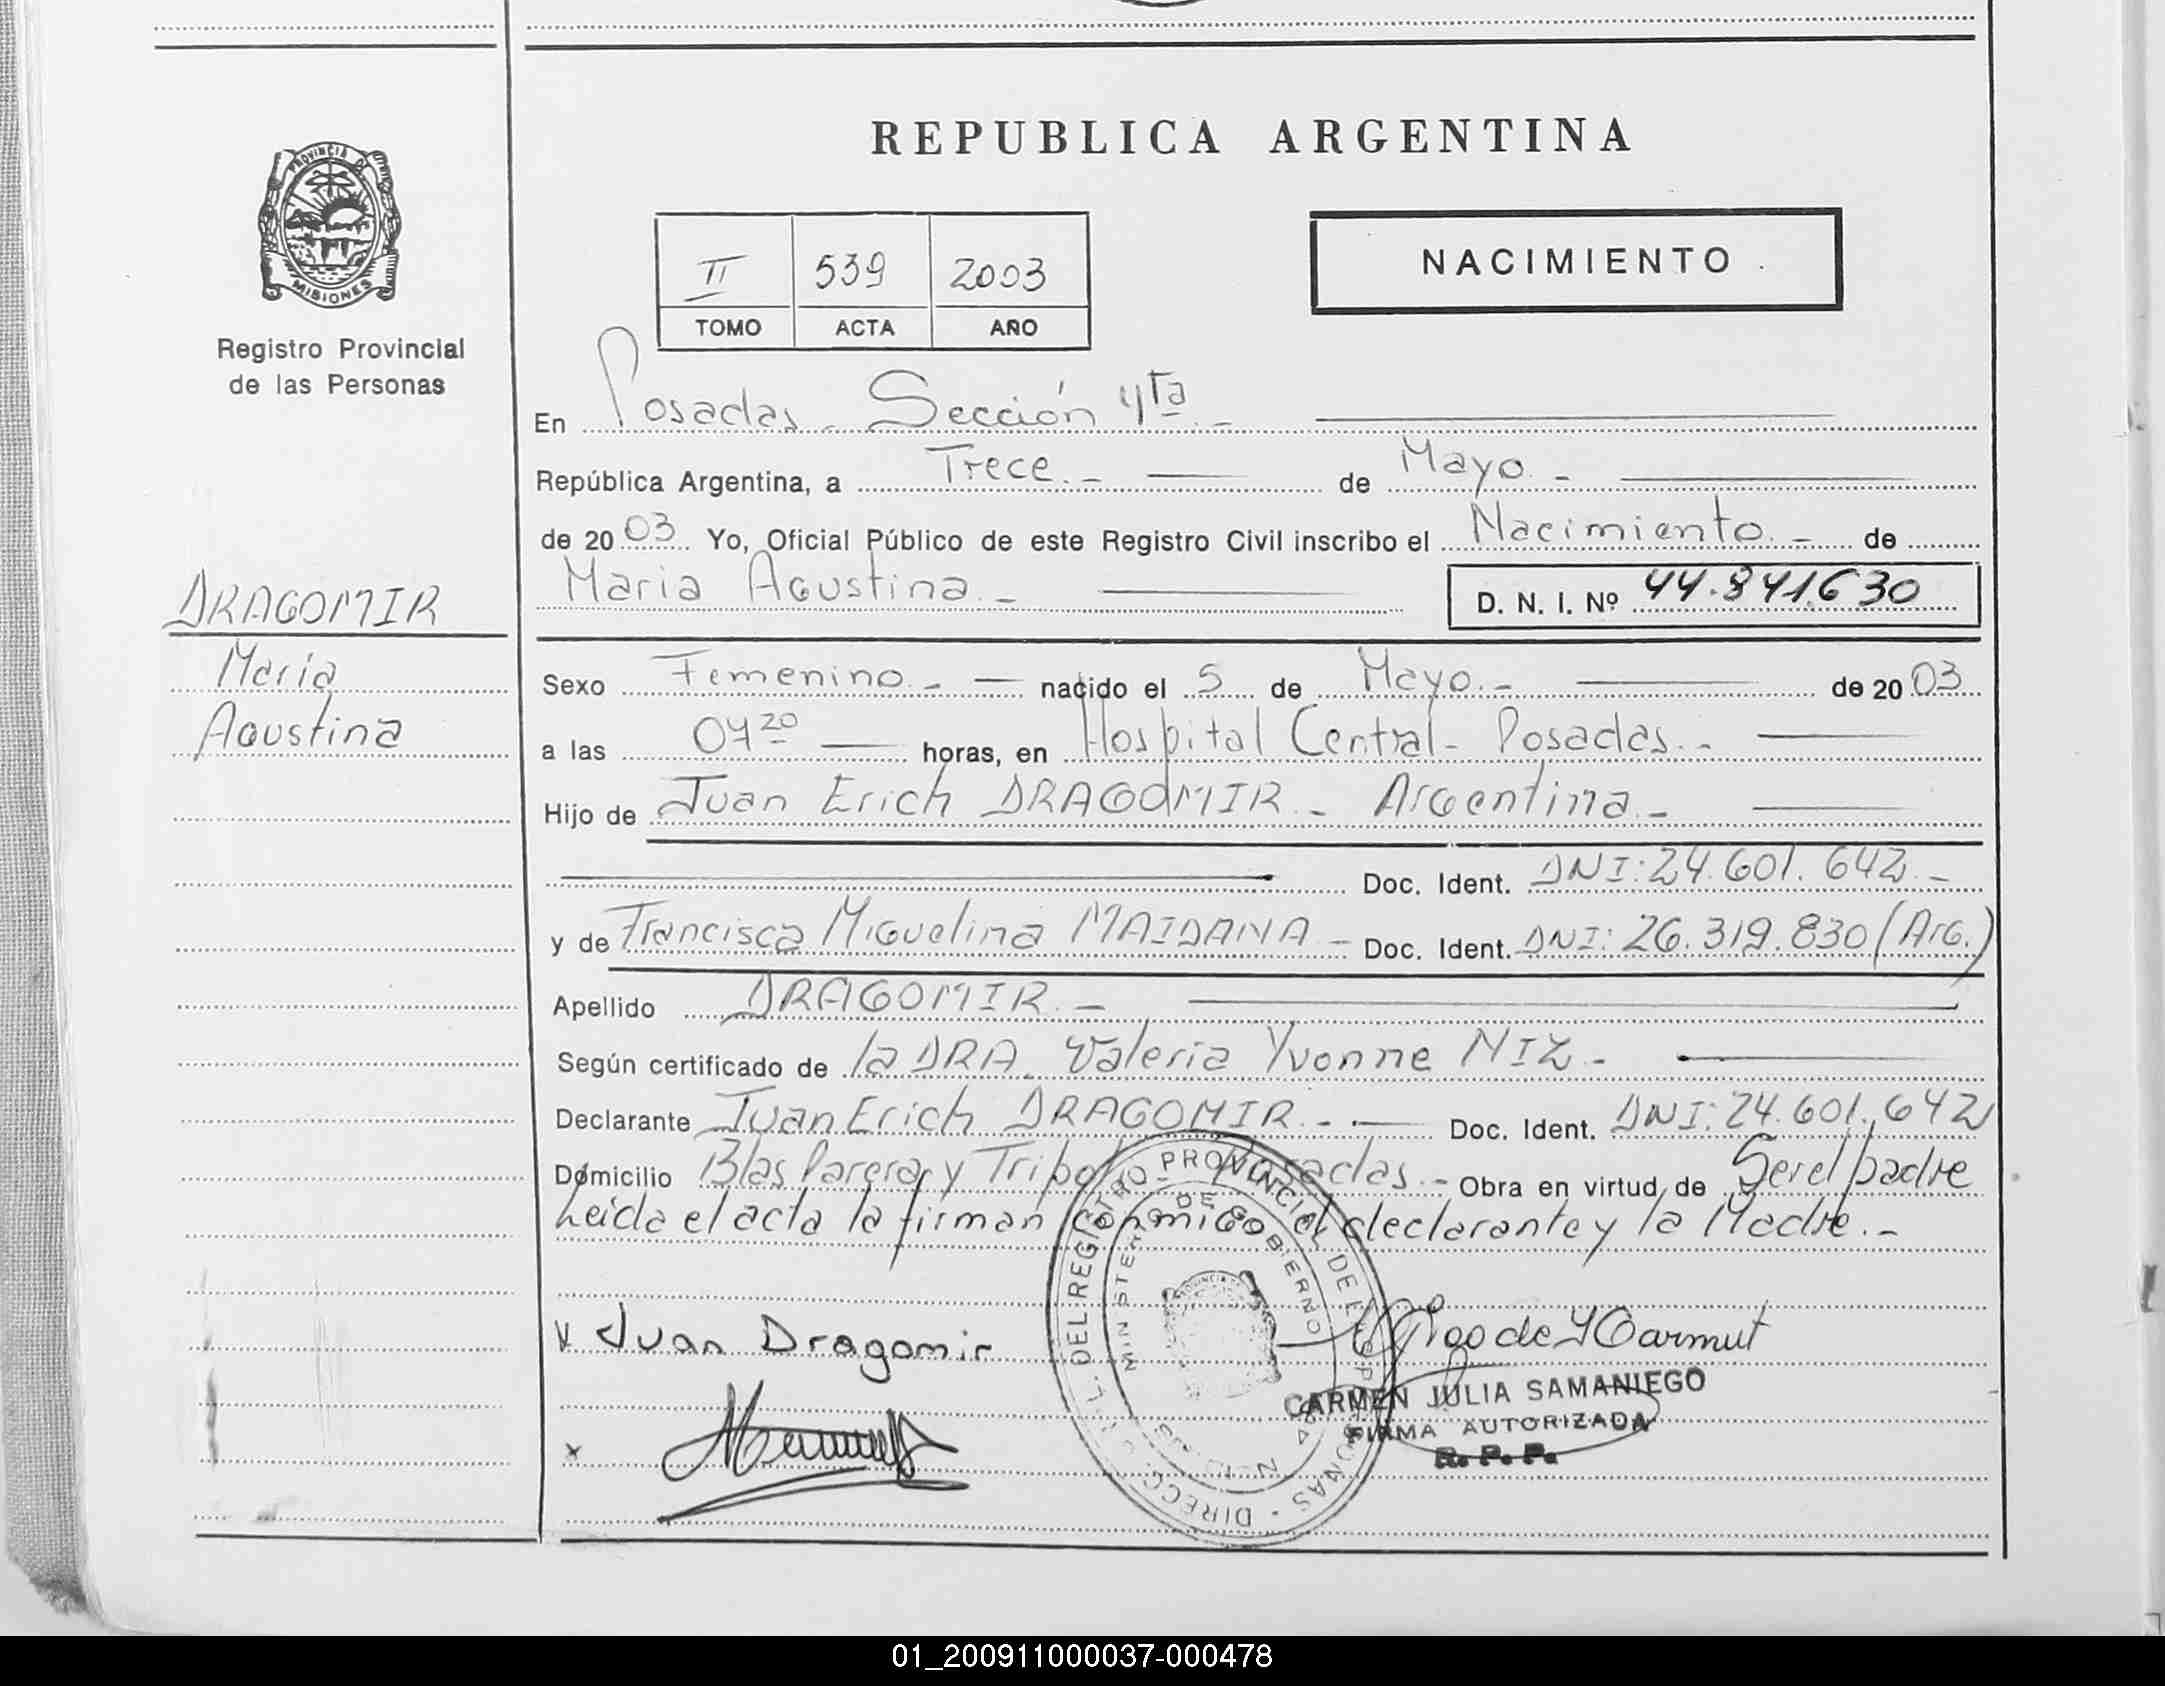 REPUBLICA ARGENTINA
PROVINCIA DE
MISIONES
Registro Provincial
de las Personas
II 539 2003
TOMO ACTA AÑO
NACIMIENTO
En Posadas - Sección 4ta -
República Argentina, a Trece.- de Mayo.-
de 2003 Yo, Oficial Público de este Registro Civil inscribo el Nacimiento.- de
Maria Agustina.- D. N. I. Nº 44.841.630
DRAGOMIR
Maria
Agustina
Sexo Femenino.- nacido el 5 de Mayo.- de 2003
a las 04 20 horas, en Hospital Central - Posadas.-
Hijo de Juan Erich DRAGOMIR.- Argentina.-
Doc. Ident. DNI: 24.601.642.-
y de Francisca Miguelina MAIDANA.- Doc. Ident. DNI: 26.319.830 (Arg.)
Apellido DRAGOMIR.-
Según certificado de la DRA. Valeria Yvonne NIZ.-
Declarante Juan Erich DRAGOMIR.- Doc. Ident. DNI: 24.601.642
Domicilio Blas Parera y Posadas.- Obra en virtud de Ser el padre
Leida el acta la firman conmigo el declarante y la Madre.-
DEL REGISTRO PROVINCIAL DE
MINISTERIO DE GOBIERNO
Juan Dragomir
CARMEN JULIA SAMANIEGO
FIRMA AUTORIZADA
R. P. P.
01_200911000037-000478